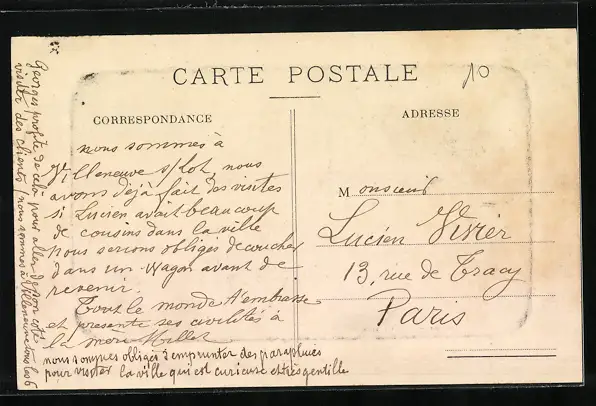 CARTE POSTALE
10
CORRESPONDANCE
ADRESSE
nous sommes à
Villeneuve s/Lot, nous
avons déjà fait des visites
si Lucien avait beaucoup
de cousins dans la ville
nous serions obligés de coucher
dans un Wagon avant de
revenir.
Tout le monde t'embrasse
et présente ses civilités à
la mère Millet
nous sommes obligés d'emprunter des parapluies
pour visiter la ville qui est curieuse et très gentille
Georges profite de cela pour aller de son côté
visiter des clients (nous sommes à Villeneuve tous les 6
Monsieur
Lucien Vivier
13, rue de Tracy
Paris